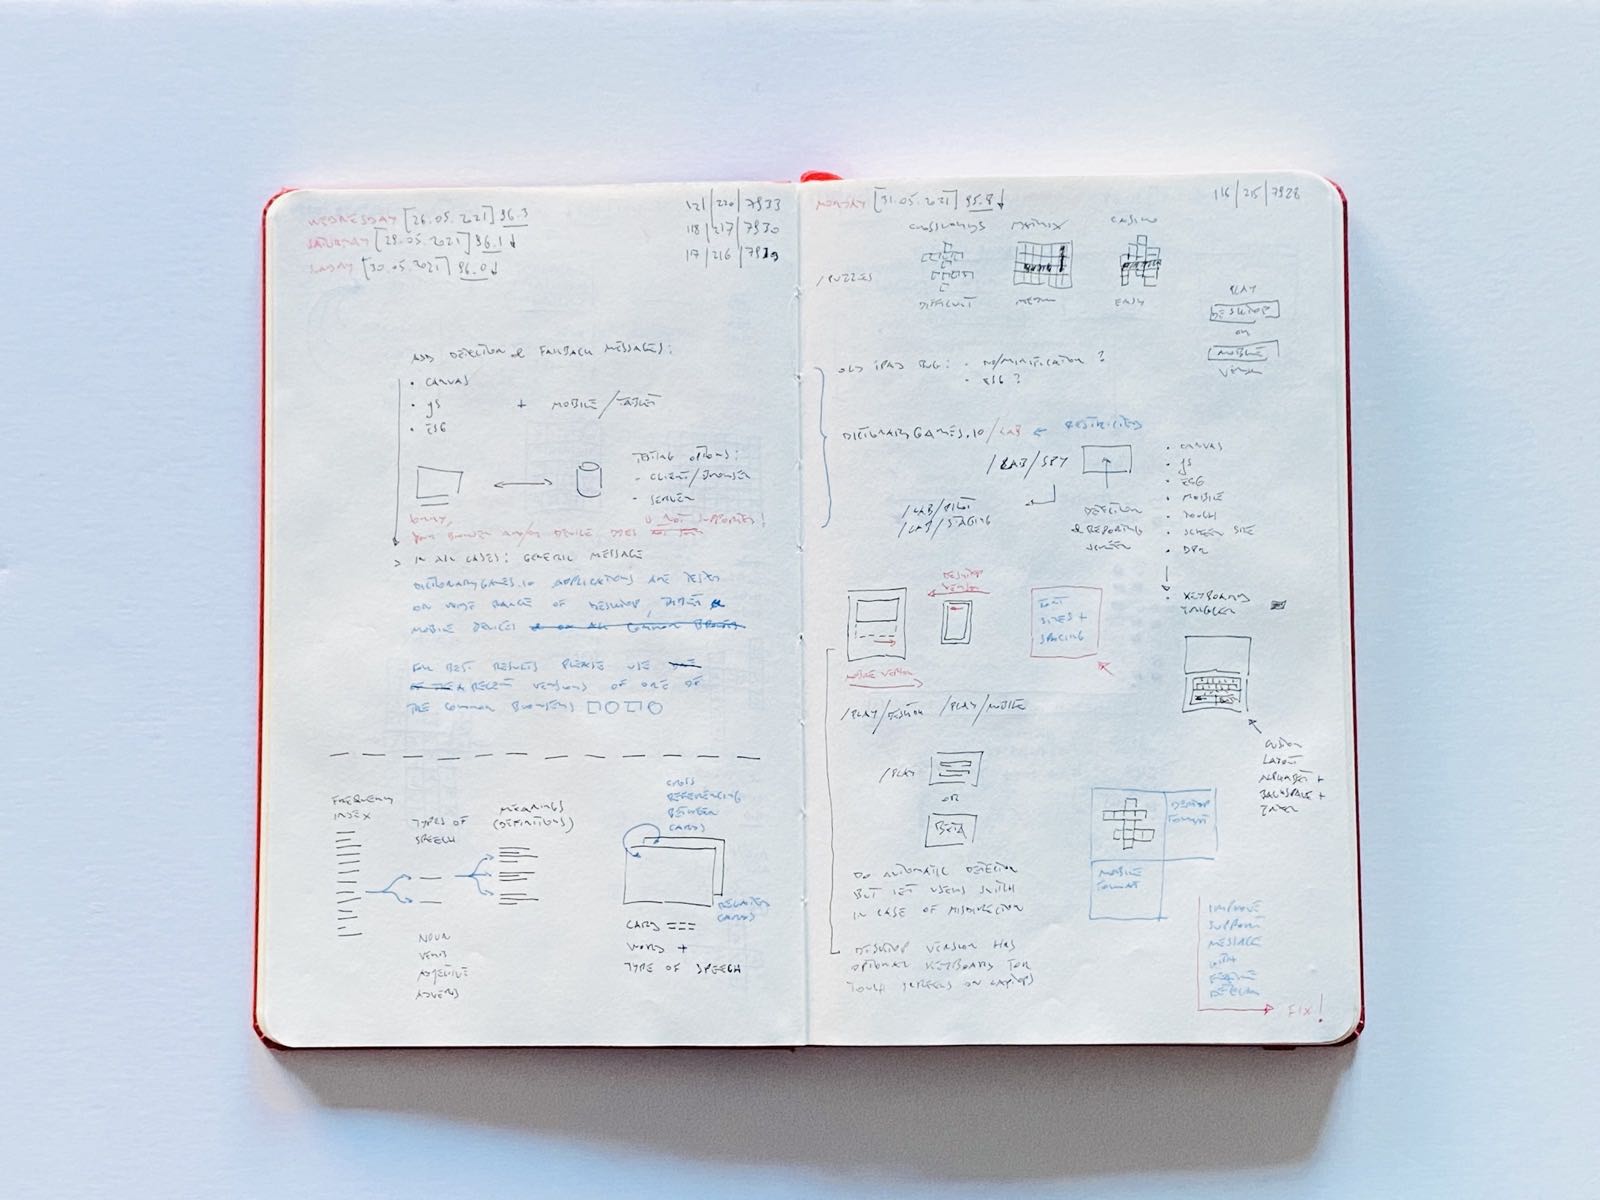 WEDNESDAY [26.05.2021] 96.3
SATURDAY [29.05.2021] 96.1
[30.05.2021] 96.0
121/220/7933
118/217/7930
117/216/79
ADD DETECTION & FALLBACK MESSAGES:
• CANVAS
• JS
• ES6
+ MOBILE/TABLET
TESTING OPTIONS:
• CLIENT/BROWSER
• SERVER
SORRY,
YOUR BROWSER AND/OR DEVICE DOES NOT
IS NOT SUPPORTED!
> IN ALL CASES: GENERIC MESSAGE
DICTIONARYGAMES.IO APPLICATIONS ARE TESTED
ON WIDE RANGE OF DESKTOP, TABLET &
MOBILE DEVICES & ON ALL COMMON BROWSERS
FOR BEST RESULTS PLEASE USE
RECENT VERSIONS OF ONE OF
THE COMMON BROWSERS
FREQUENCY
INDEX
TYPES OF
SPEECH
MEANINGS
(DEFINITIONS)
CROSS
REFERENCING
BETWEEN
CARDS
RELATED
CARDS
NOUN
VERB
ADJECTIVE
ADVERB
CARD ===
WORD +
TYPE OF SPEECH
MONDAY [31.05.2021] 95.8
116/215/7928
/PUZZLES
CROSSWORDS
MATRIX
CASINO
DIFFICULT
MEDIUM
EASY
PLAY
DESKTOP
OR
MOBILE
VERSION
OLD IPAD BUG: • NO/MINIFICATION?
• ES6?
DICTIONARYGAMES.IO/LAB ←
/LAB/SPY
/LAB/PILOT
/LAB/STAGING
DETECTION
& REPORTING
SCREEN
• CANVAS
• JS
• ES6
• MOBILE
• TOUCH
• SCREEN SIZE
• DPR
• KEYBOARD
TRIGGER
DESKTOP
VERSION
MOBILE VERSION
FONT
SIZES +
SPACING
/PLAY/DESKTOP /PLAY/MOBILE
/PLAY
OR
BETA
CUSTOM
LAYOUT
ALPHABET +
BACKSPACE +
ENTER
DESKTOP
FORMAT
MOBILE
FORMAT
DO AUTOMATIC DETECTION
BUT LET USERS SWITCH
IN CASE OF MISDIRECTION
DESKTOP VERSION HAS
OPTIONAL KEYBOARD FOR
TOUCH SCREENS ON LAPTOPS
IMPROVE
SUPPORT
MESSAGE
WITH
FEATURE
DETECTION
FIX!